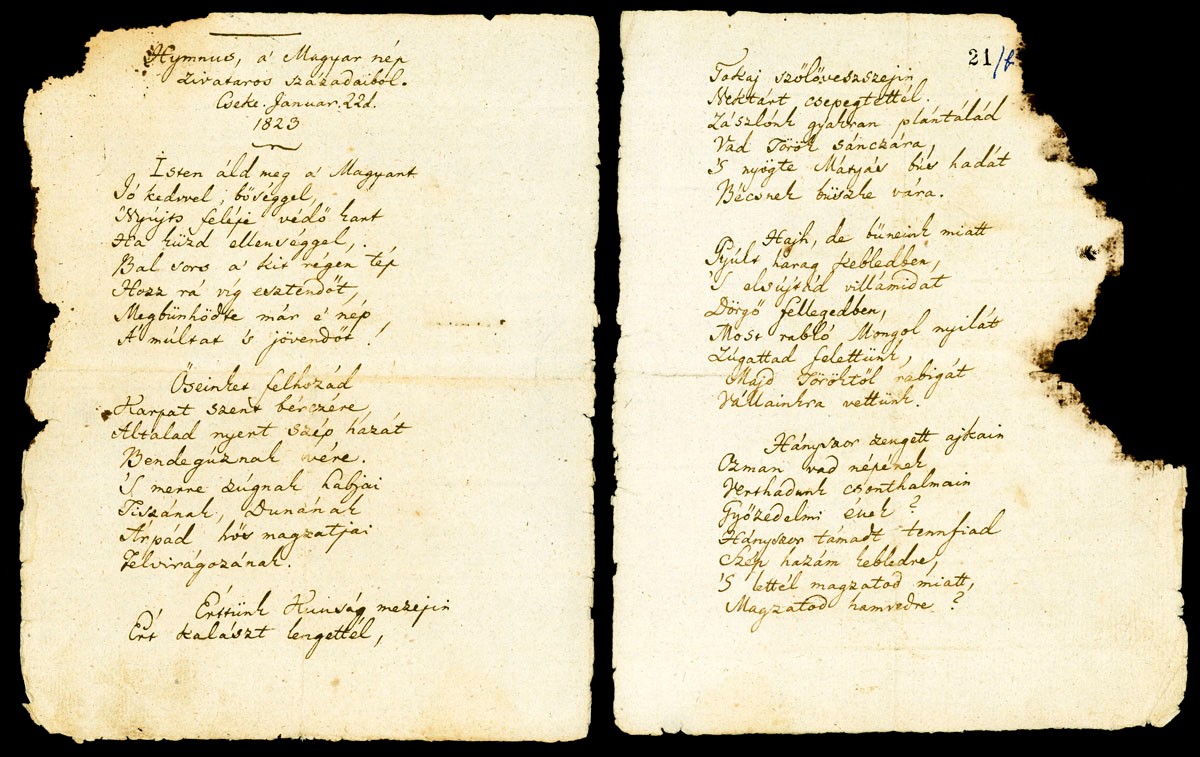 Hymnus, a' Magyar nép
Zivataros századaiból.
Cseke. Januar. 22d.
1823
Isten áld meg a' Magyart
Jó kedvvel, bőséggel,
Nyújts feléje védő kart
Ha küzd ellenséggel,
Bal sors a' kit régen tép
Hozz rá víg esztendőt,
Megbűnhődte már e' nép
A' múltat 's jövendőt!
Őseinket felhozád
Kárpát szent bérczére,
Általad nyert szép hazát
Bendegúznak vére.
'S merre zúgnak habjai
Tiszának, Dunának
Árpád hős magzatjai
Felvirágozának.
Értünk Kunság mezejin
Ért kalászt lengettél,
21/b
Tokaj szőlővesszejin
Nektárt csepegtettél.
Zászlónk gyakran plántálád
Vad Török sánczára,
'S nyögte Mátyás bús hadát
Bécsnek büszke vára.
Hajh, de bűneink miatt
Gyúlt harag kebledben,
'S elsújtád villámidat
Dörgő fellegedben,
Most rabló Mongol nyilát
Zúgattad felettünk,
Majd Töröktől rabigát
Vállainkra vettünk.
Hányszor zengett ajkain
Ozman vad népének
Verthadunk csonthalmain
Győzedelmi ének?
Hányszor támadt tennfiad
Szép hazám kebledre,
'S lettél magzatod miatt,
Magzatod hamvedre?